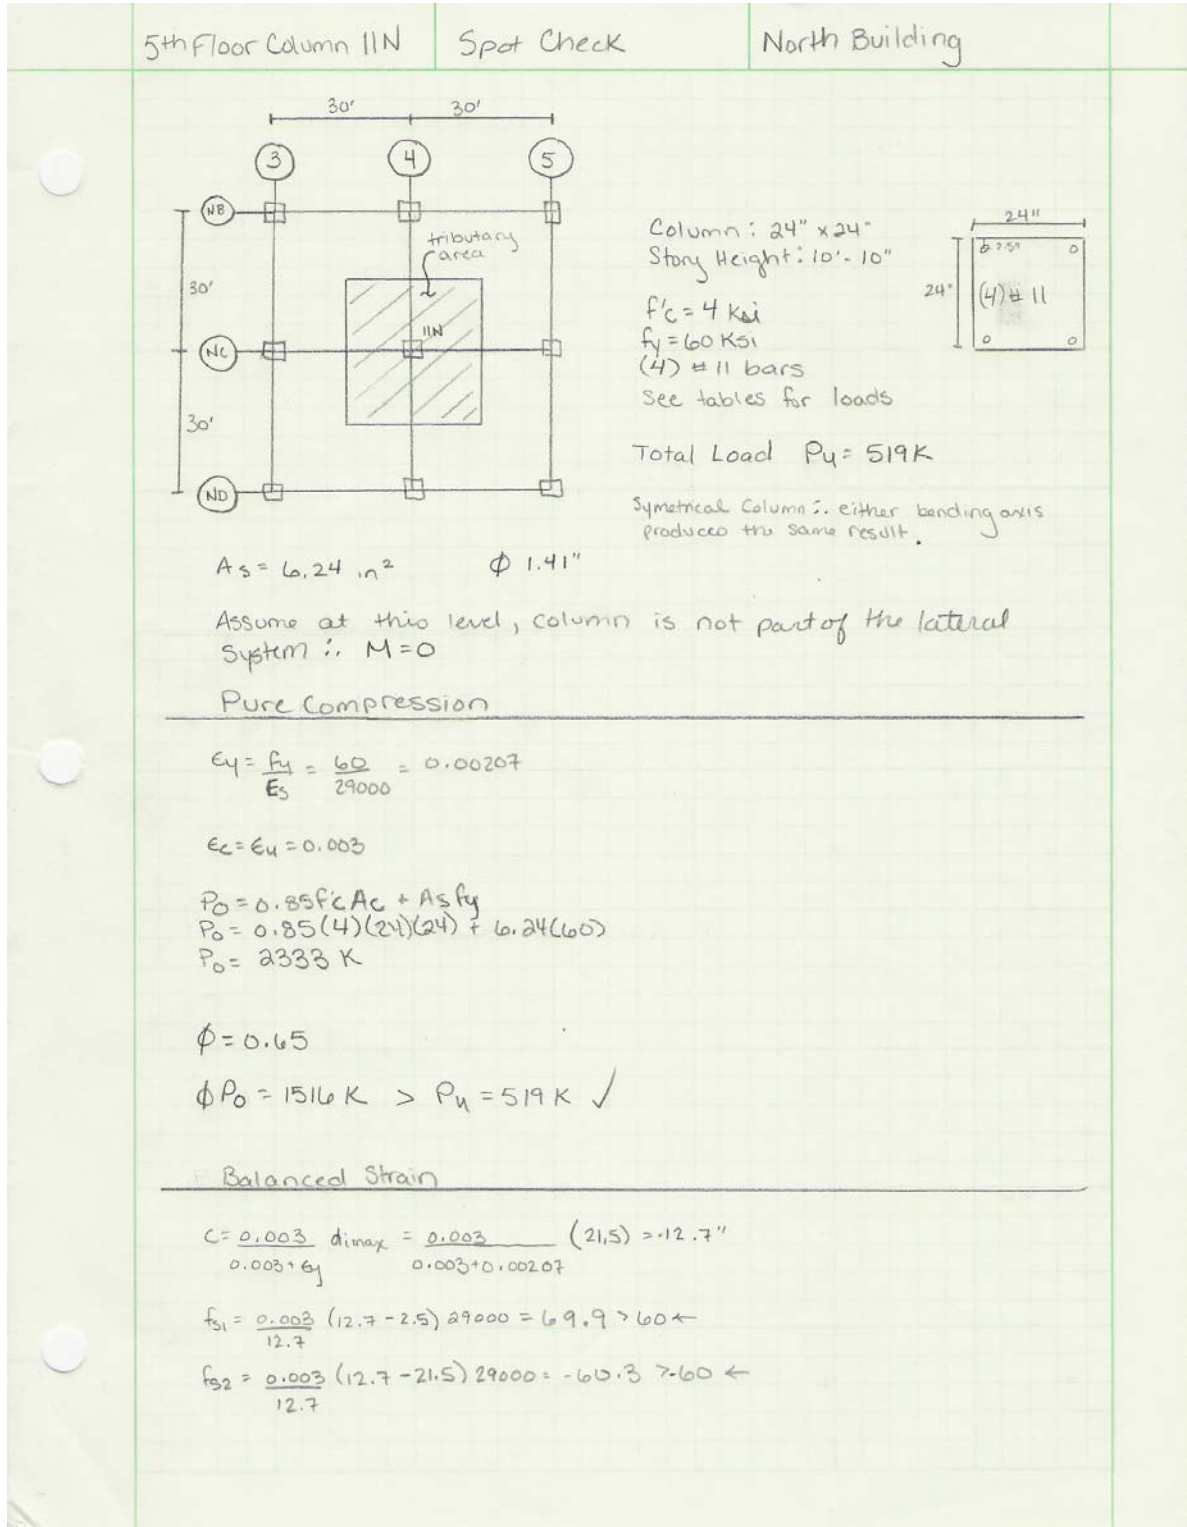 5th Floor Column 11N
Spot Check
North Building
30' 30'
3 4 5
NB
tributary
area
30'
11N
NC
30'
ND
Column: 24" x 24"
Story Height: 10'-10"
f'c = 4 Ksi
fy = 60 Ksi
(4) # 11 bars
See tables for loads
24"
2.5"
24"
(4) # 11
Total Load Pu = 519K
Symetrical Column ∴ either bending axis
produces the same result.
As = 6.24 in² ϕ 1.41"
Assume at this level, column is not part of the lateral
System ∴ M=0
Pure Compression
εy = fy/Es = 60/29000 = 0.00207
εc = εu = 0.003
Po = 0.85f'cAc + Asfy
Po = 0.85(4)(24)(24) + 6.24(60)
Po = 2333 K
ϕ = 0.65
ϕPo = 1516 K > Pu = 519 K ✓
Balanced Strain
C = 0.003/0.003+εy dimax = 0.003/0.003+0.00207 (21.5) = 12.7"
fs1 = 0.003/12.7 (12.7 - 2.5) 29000 = 69.9 > 60 ←
fs2 = 0.003/12.7 (12.7 - 21.5) 29000 = -60.3 > -60 ←